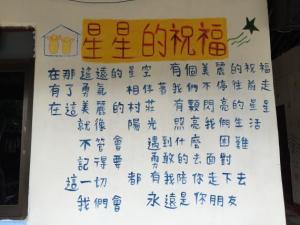 星星的祝福
在那遙遠的星空 有個美麗的祝福
有了勇氣 相伴著我們不停往前走
在這美麗的村莊 有點閃亮的星星
就像 陽光 照亮我們生活
不管會 遇到什麼 困難
記得要 勇敢的去面對
這一切 都有我陪你走下去
我們會 永遠是你朋友